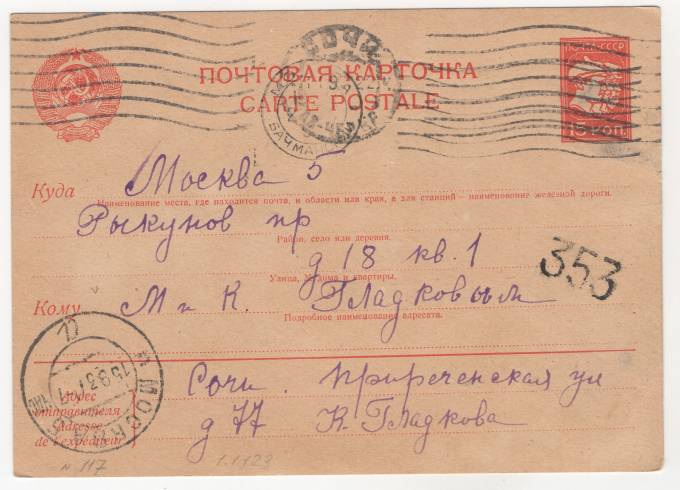 ПОЧТОВАЯ КАРТОЧКА
CARTE POSTALE
ПОЧТА-СССР
15 КОП.
СОЧИ
Куда Москва 5
Наименование места, где находится почта, и области или края, а для станций — наименование железной дороги.
Рыкунов пр
Район, село или деревня.
д 18 кв. 1
Улица, № дома и квартиры.
353
Кому М и К. Гладковым
Подробное наименование адресата.
МОСКВА
15 8 37
Адрес отправителя
Adresse de l'expéditeur
Сочи. Приреченская ул
д 77 К Гладкова
N 117